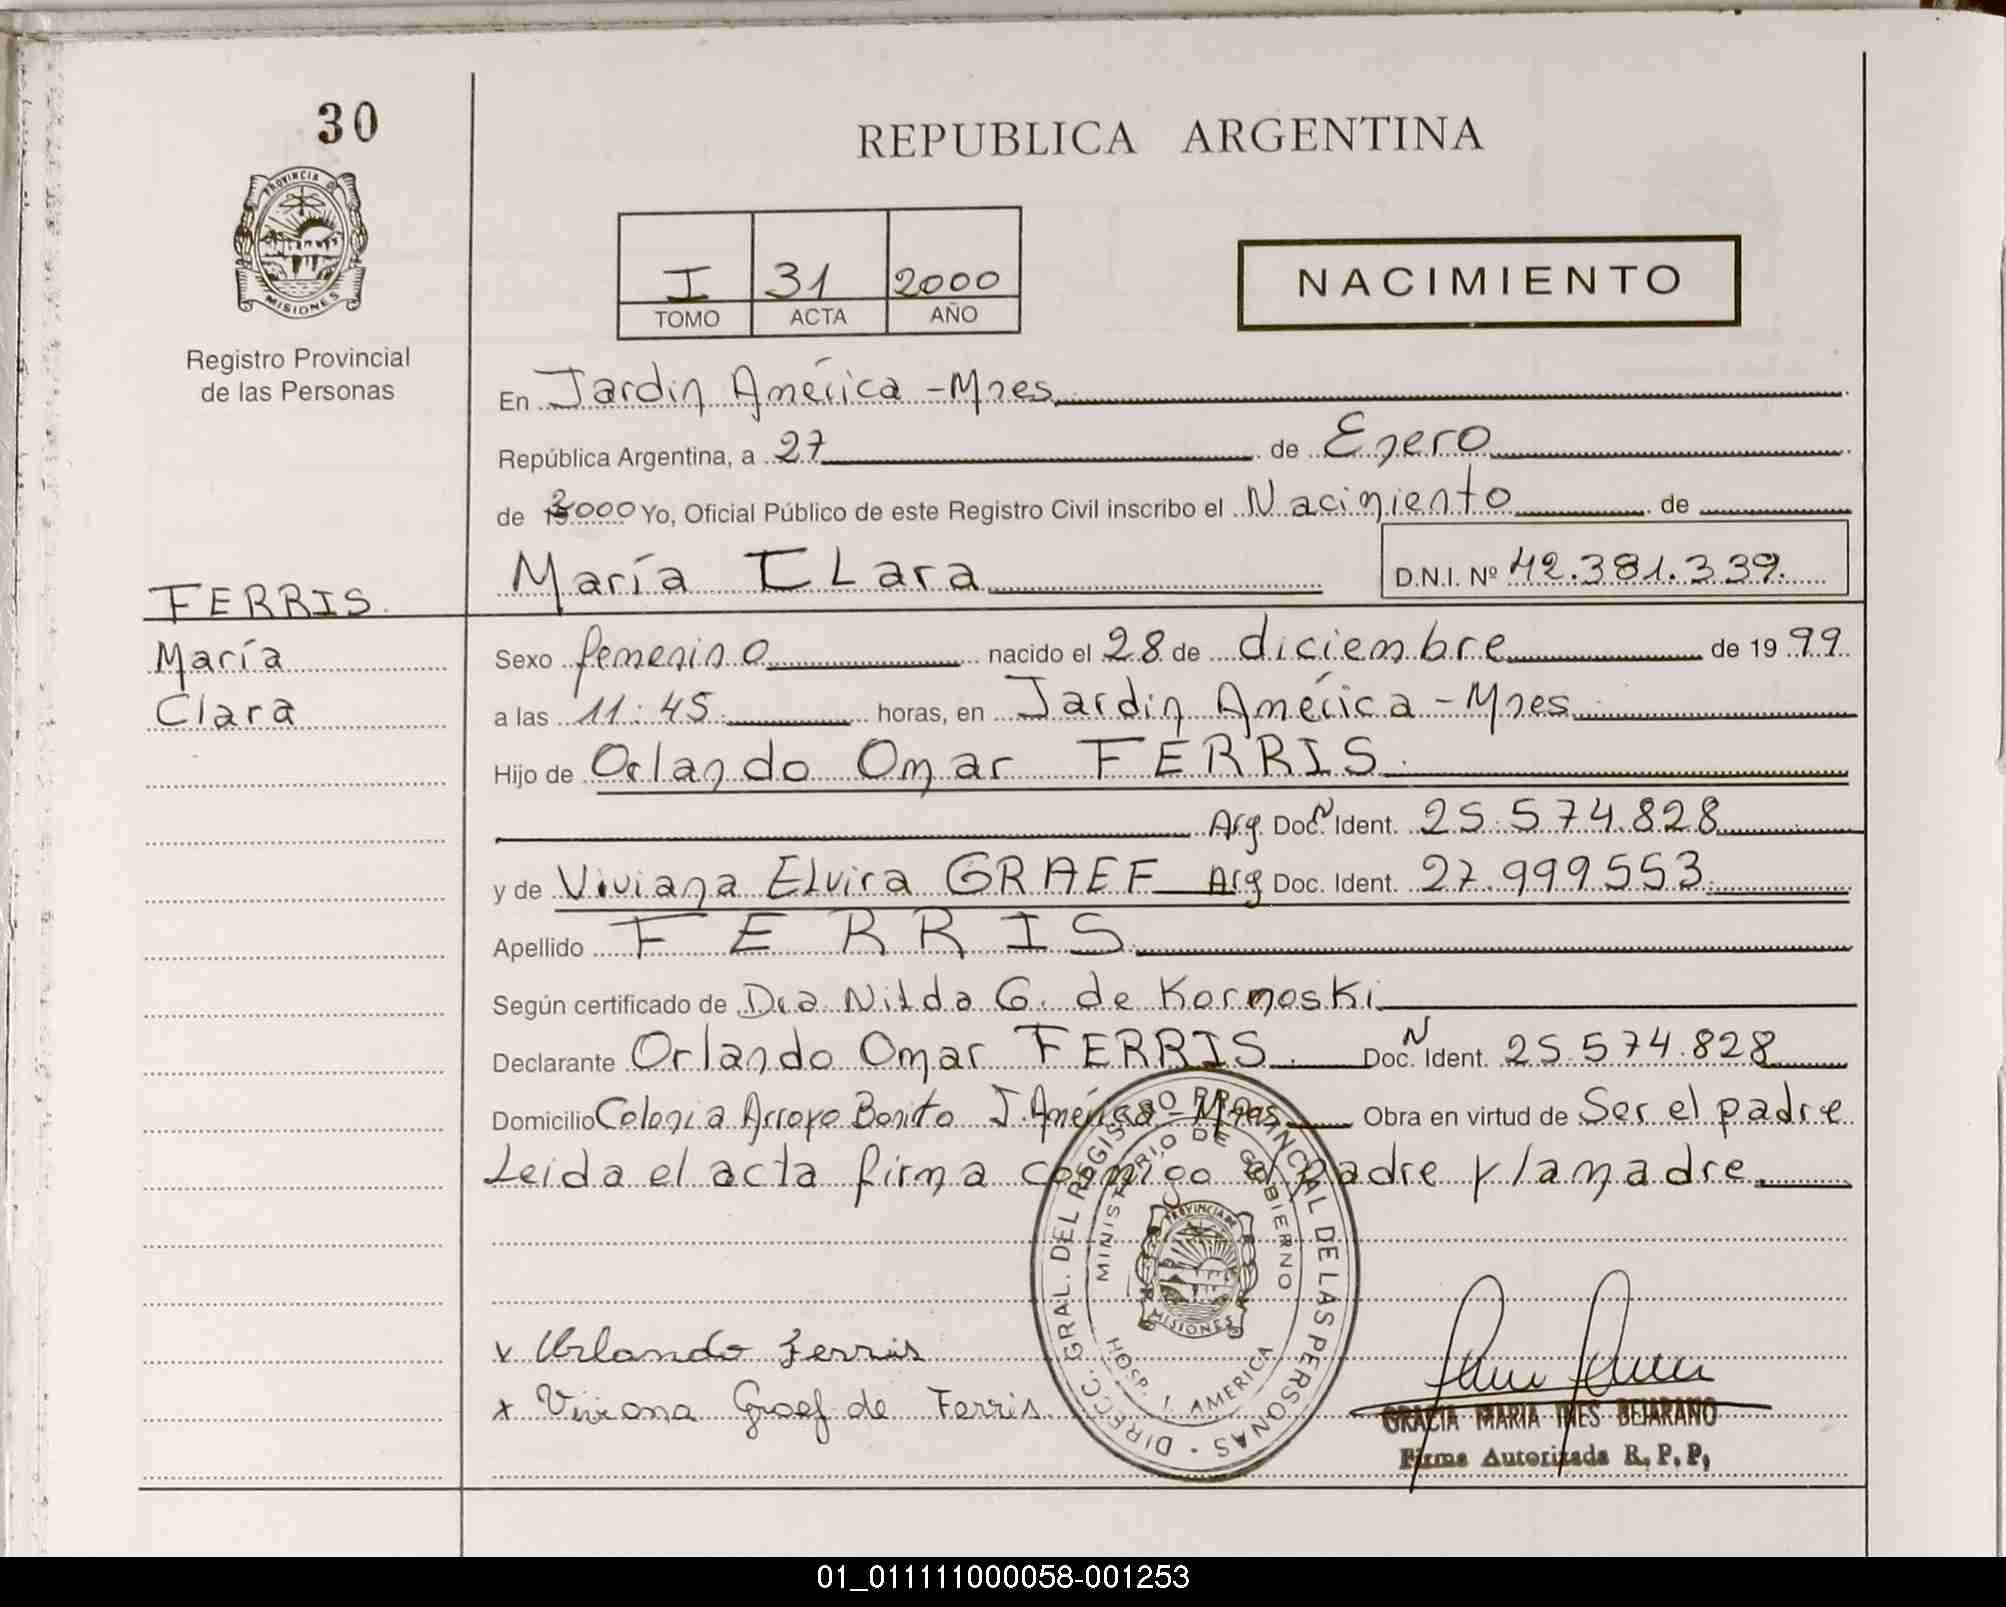 30
REPUBLICA ARGENTINA
PROVINCIA DE
MISIONES
Registro Provincial
de las Personas
I 31 2000
TOMO ACTA AÑO
NACIMIENTO
En Jardin América - Mnes
República Argentina, a 27 de Enero
de 2000 Yo, Oficial Público de este Registro Civil inscribo el Nacimiento de
María CLara D.N.I. Nº 42.381.339.
FERRIS
María
Clara
Sexo femenino nacido el 28 de diciembre de 1999
a las 11:45 horas, en Jardin América - Mnes
Hijo de Orlando Omar FERRIS
Arg. Doc. N Ident. 25.574.828
y de Viviana Elvira GRAEF Arg Doc. Ident. 27.999553
Apellido FERRIS
Según certificado de Dra Nilda G. de Kornoski
Declarante Orlando Omar FERRIS. Doc. N Ident. 25.574.828
Domicilio Colonia Arroyo Bonito J. América - Mnes Obra en virtud de Ser el padre
Leida el acta firma conmigo el padre y la madre.
DIRECC. GRAL. DEL REGISTRO PROVINCIAL DE LAS PERSONAS
MINISTERIO DE GOBIERNO
PROVINCIA DE
MISIONES
HOSP. J. AMERICA
x Orlando Ferris
x Viviana Graef de Ferris
GRACIA MARIA INES BEJARANO
Firma Autorizada R. P. P.
01_011111000058-001253